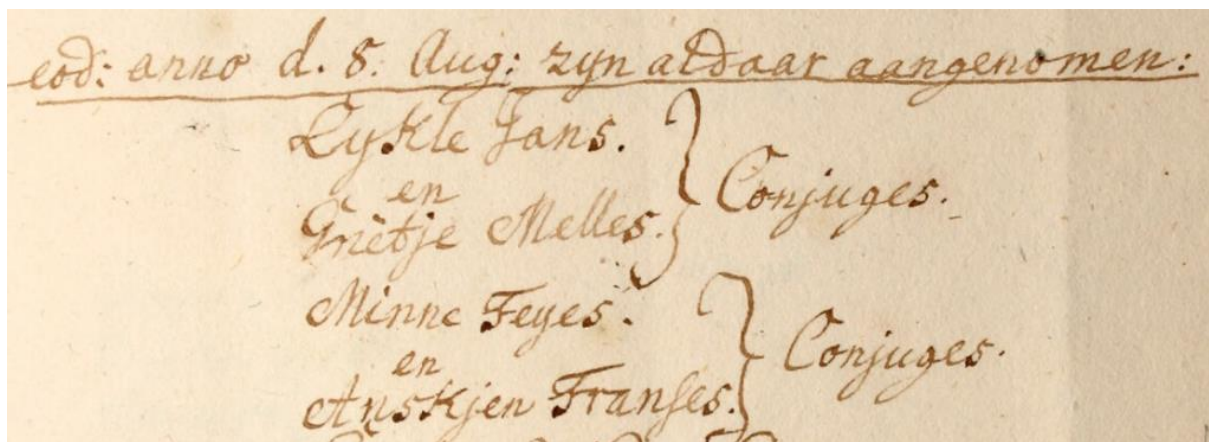 eod: anno d. 8. Aug: zyn aldaar aangenomen:
Lykle Jans.
en
Grietje Melles.
Conjuges.
Minne Feyes.
en
Anskjen Franses.
Conjuges.